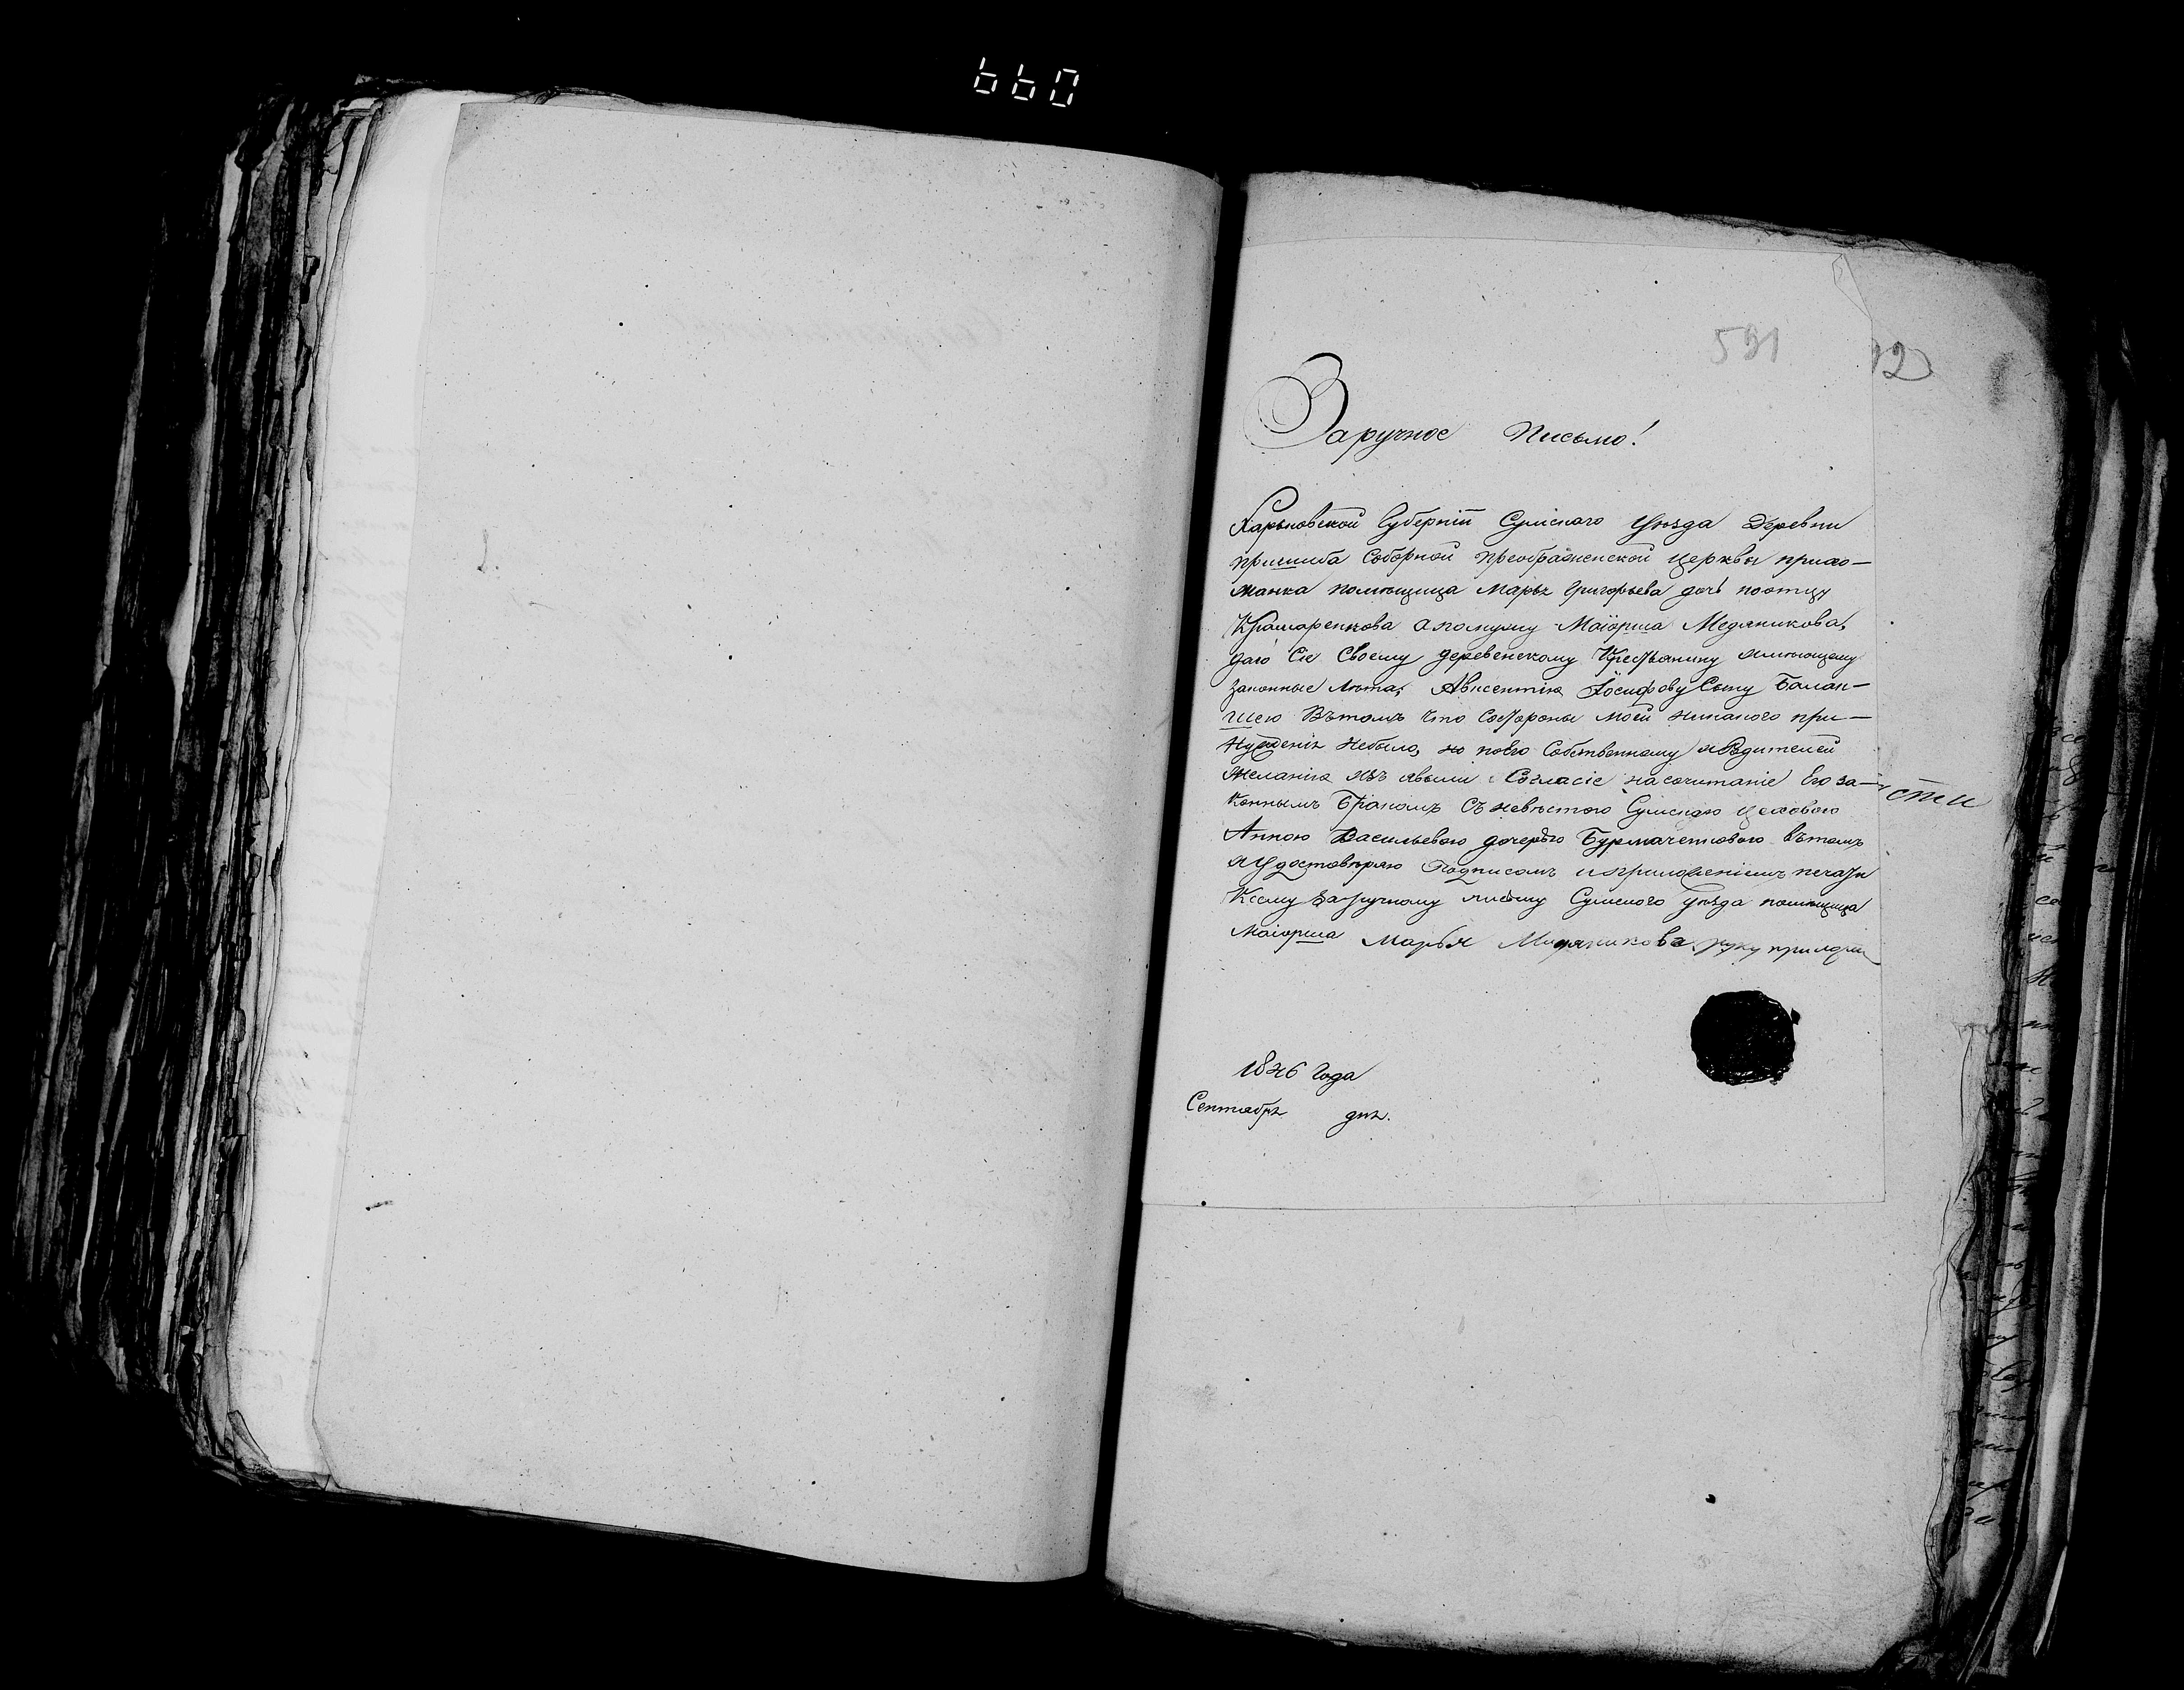 660
591
12
Заручное Письмо!
Харьковской Губерніи Сумскаго Уѣзда Деревни
пришиба Соборной преображенской церквы прихо-
жанка помѣщица Марья Григорьева дочь поотцу
Крамаренкова апомужу Маіорша Медяникова,
даю Сіе Своему деревенскому Крестьянину имѣющему
законные лѣта, Авксентію Іосифову Сыну Балан-
Вътомъ что Состороны моей никакого при-
нужденія небыло, но поего Собственному иродителей
желанія изъявыли Согласіе насочитаніе Его за-
коннымъ Бракомъ Съ невѣстою Сумскою цеховою
Анною Васильевою дочерью вътомъ
иудостовѣряю Подписомъ исприложеніемъ печати
Ксему Заручному письму Сумского уѣзда помѣщица
Маіорша Марья Медяникова руку приложи
сти
1846 Года
Сентября дня.